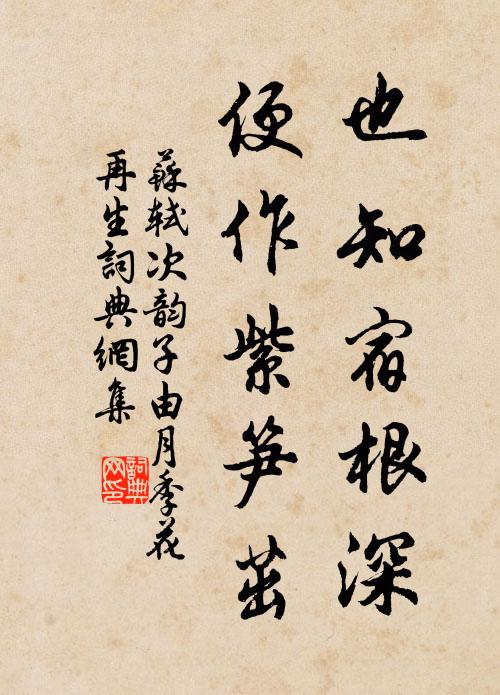 也知宿根深
便作紫笋茁
蘇軾次韵子由月季花
再生詞典網集
詞典
网印